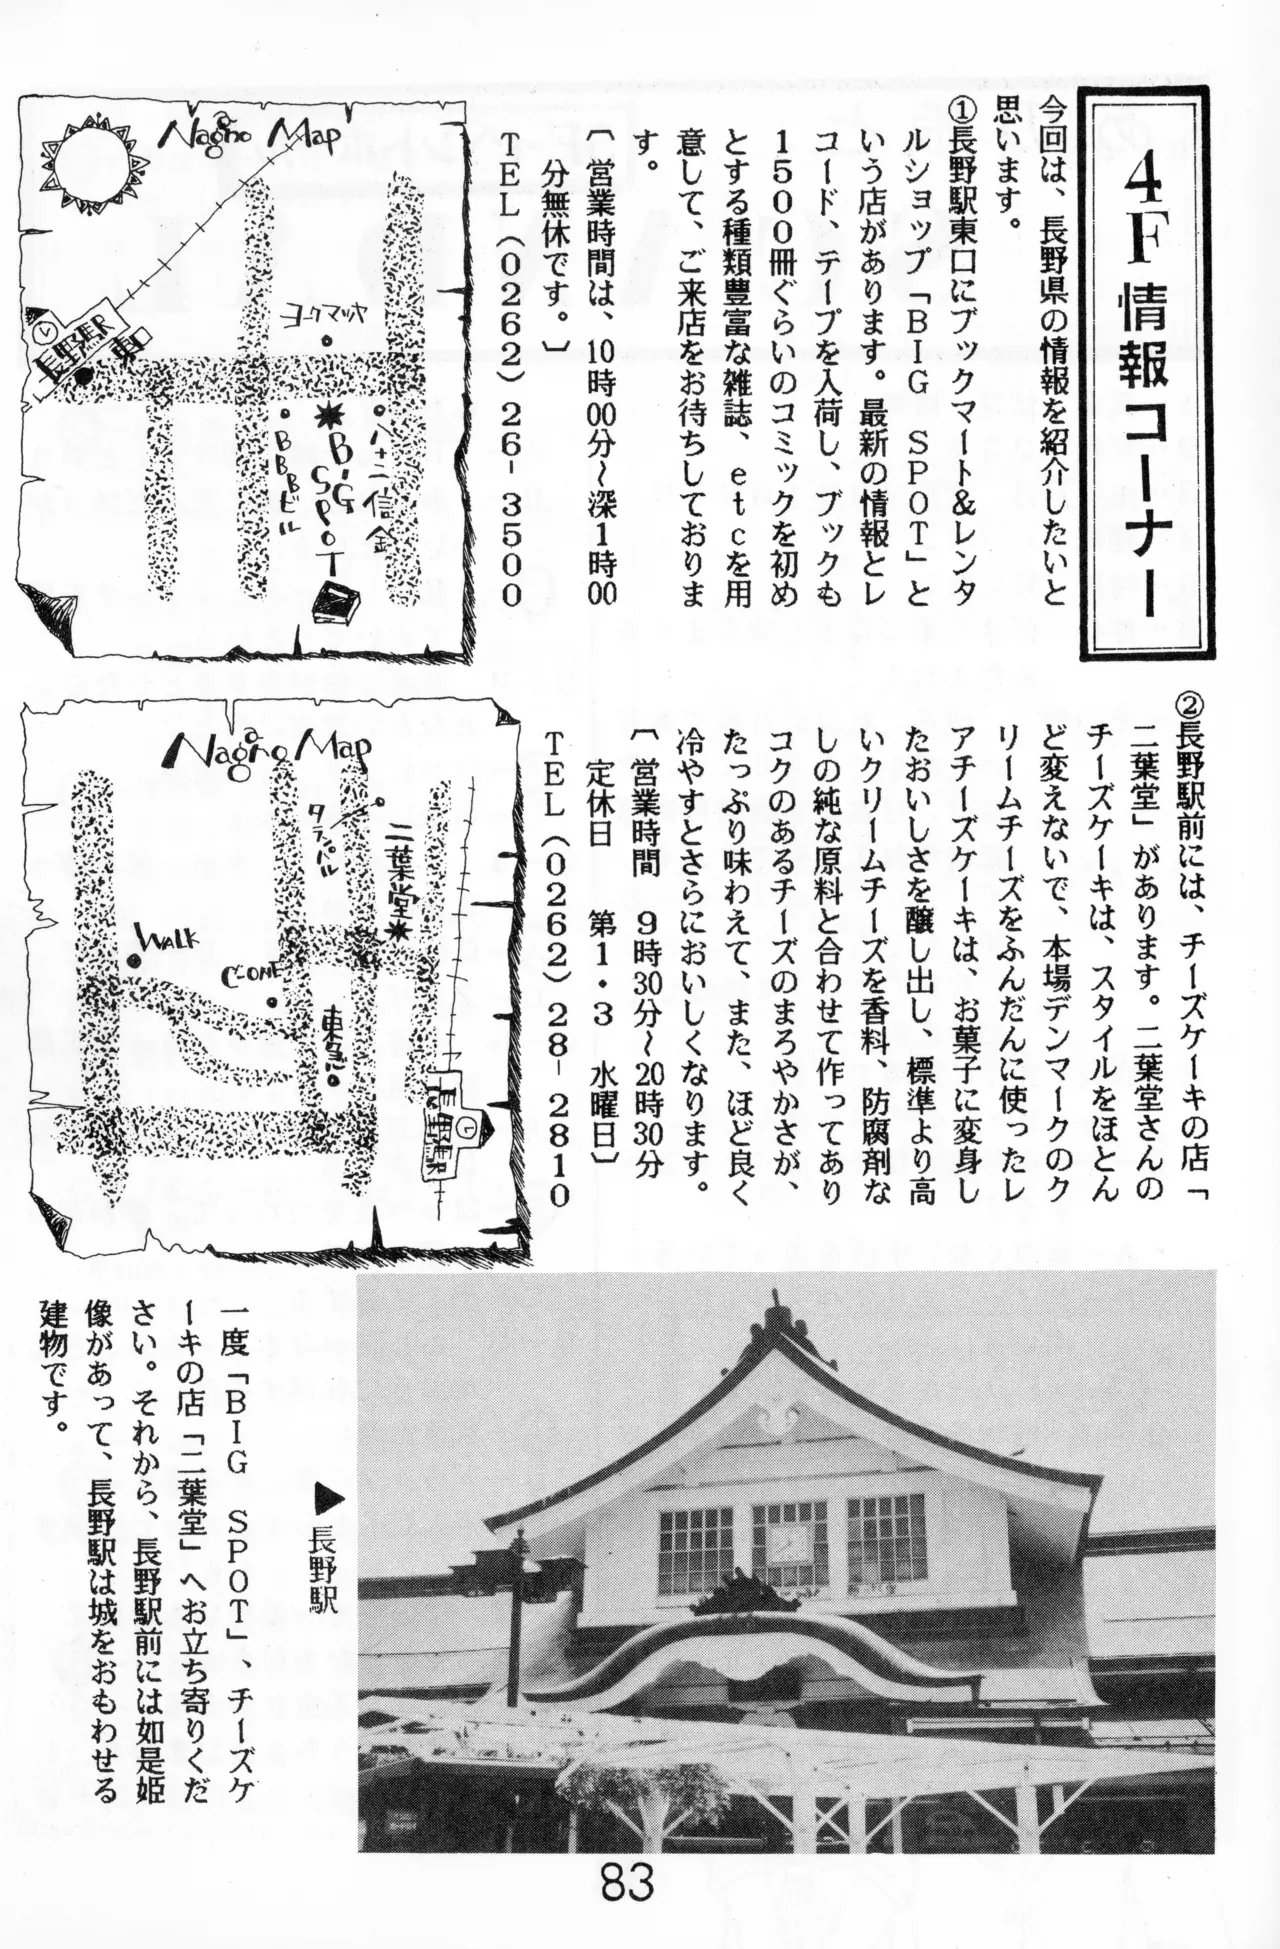 4F情報コーナー
今回は、長野県の情報を紹介したいと
思います。
①長野駅東口にブックマート&レンタ
ルショップ「BIG SPOT」と
いう店があります。最新の情報とレ
コード、テープを入荷し、ブックも
1500冊ぐらいのコミックを初め
とする種類豊富な雑誌、etcを用
意して、ご来店をお待ちしておりま
す。
〔営業時間は、10時00分〜深1時00
分無休です。〕
TEL(0262)26-3500
Nagano Map
長野駅
東口
ヨークマツヤ
八十二信金
BIG
SPOT
BBBビル
②長野駅前には、チーズケーキの店「
二葉堂」があります。二葉堂さんの
チーズケーキは、スタイルをほとん
ど変えないで、本場デンマークのク
リームチーズをふんだんに使ったレ
アチーズケーキは、お菓子に変身し
たおいしさを醸し出し、標準より高
いクリームチーズを香料、防腐剤な
しの純な原料と合わせて作ってあり
コクのあるチーズのまろやかさが、
たっぷり味わえて、また、ほど良く
冷やすとさらにおいしくなります。
〔営業時間 9時30分〜20時30分
定休日 第1・3 水曜日〕
TEL(0262)28-2810
Nagano Map
二葉堂
WALK
CLONE
東急
長野駅
▶長野駅
一度「BIG SPOT」、チーズケ
ーキの店「二葉堂」へお立ち寄りくだ
さい。それから、長野駅前には如是姫
像があって、長野駅は城をおもわせる
建物です。
83